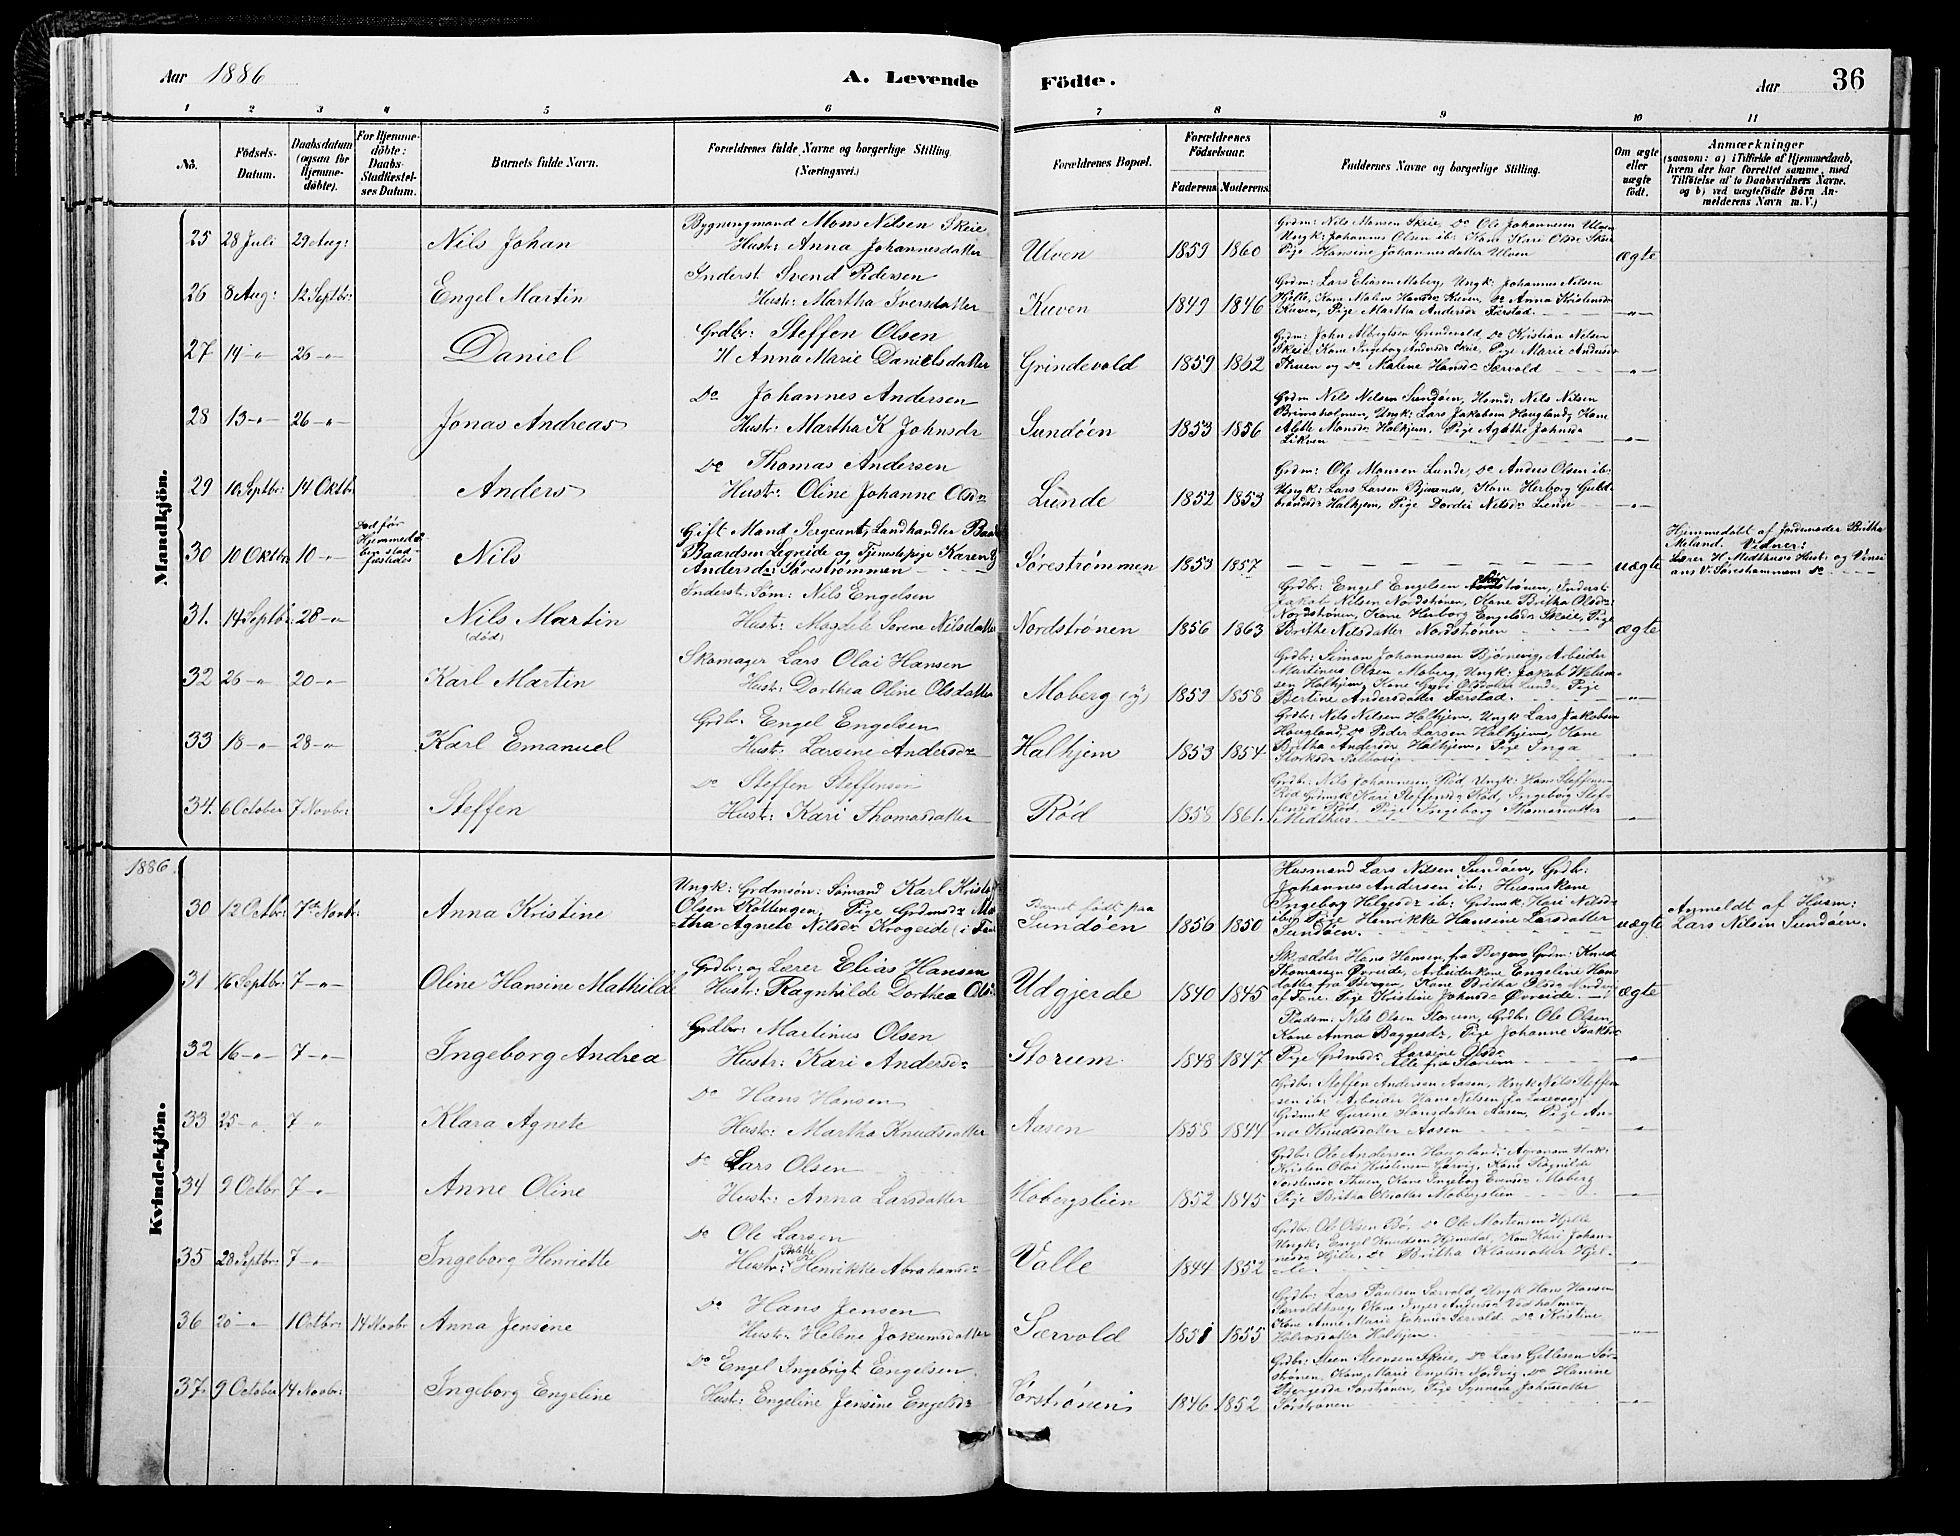 Aar 1886
A. Levende Födte.
Aar 36
1 2 3 4 5 6 7 8 9 10 11
No.
Födsels-Datum.
Daabsdatum (ogsaa for Hjemme-döbte).
For Hjemme-döbte: Daabs-Stadfæstel-ses Datum.
Barnets fulde Navn.
Forældrenes fulde Navne og borgerlige Stilling. (Næringsvei.)
Forældrenes Bopæl.
Forældrenes Födselsaar.
Faderens. Moderens.
Faddernes Navne og borgerlige Stilling.
Om ægte eller uægte født.
Anmærkninger
(saasom: a) i Tilfælde af Hjemmedaab,
hvem der har forrettet samme, med
Tilföielse af to Daabsvidners Navne.
og b) ved uægtefödte Börn An-
melderens Navn m. V.)
Mandkjön.
25 28 Juli 29 Aug: Nils Johan
Bygningmand Mons Nilsen Skeie
Hustr: Anna Johannesdatter
Ulven 1859 1860
Grdm: Nils Monsen Skeie, Do Ole Johannesen Ulven
Ungk: Johannes Olsen ib: Kone Kari Olsdr Skeie
Pige Hansine Johannesdatter Ulven
ægte
26 8 Aug: 12 Septbr: Engel Martin
Inderst Svend Pedersen
Hustr: Martha Iversdatter
Kuven 1849 1846
Grdm: Lars Eliasen Moberg, Ungk: Johannes Nilsen
Hjelle, Kone Malene Hansdr Kuven, Do Anna Kristensdr
Kuven, Pige Martha Andersdr Færstad.
-"-
27 14 -"- 26 -"- Daniel
Grdbr: Steffen Olsen
H Anna Marie Danielsdatter
Grindevold 1859 1862
Grdm: John Albrigtsen Grindevold, Do Kristian Nilsen
Skeie, Kone Ingeborg Andersdr Skeie, Pige Marie Andersdr
Thuen og Do Malene Hansdr Særvold
-"-
28 13 -"- 26 -"- Jonas Andreas
Do Johannes Andersen
Hustr: Martha K Johnsdr
Sundöen 1853 1856
Grdm Nils Nilsen Sundöen, Husmd: Nils Nilsen
Brimsholmen, Ungk: Lars Jakobsen Haugland, Kone
Alette Monsdr Halhjem, Pige Agathe Johnsdr
-"-
29 10 Septbr: 14 Oktbr Anders
Do Thomas Andersen
Hustr: Oline Johanne Olsdr
Lunde 1852 1853
Grdm: Ole Monsen Lunde, Do Anders Olsen ib:
Ungk: Lars Larsen Bjørnnes, Kone Herborg Guld-
brandsdr Halhjem, Pige Dordei Nilsdr Lunde
-"-
30 10 Oktbr 10 -"-
Død før
Nils
Gift Mand Sergeant, Landhandler Baard
Baardsen Legreide og Tjenestepige Karen
Andersdr: Sørestrømmen
Sørestrømmen 1853 1857
uægte
Hjemmedøbt af Jordemoder Britha
Meland. Vidner:
Lærer H. Midthuse Hustr: og Vinsi-
ans V. Søreshammens Do
31. 14 Septbr: 28 -"- Nils Martin
(død)
Inderst. Søm: Nils Engelsen
Hustr: Magdele Serene Nilsdatter
Nordstrønen 1856 1863
Grdbr: Engel Engelsen strønen, Inderst
Jakob Nilsen Nordstrønen, Kone Britha Olsdr
Nordstrønen, Kone Herborg Engelsdr Skeie, Pige
Brithe Nilsdatter Nordstrønen
ægte
32 26 -"- 20 -"- Karl Martin
Skomager Lars Olai Hansen
Hustr: Dorthea Oline Olsdatter
Moberg (y) 1859 1858
Grdbr: Simon Johannesen Bjørnevig, Arbeider
Martinus Olsen Moberg, Ungk: Jakob Wilum-
sen Halhjem, Kone Guri Olsdatter Lunde, Pige
Bertine Andersdatter Færstad.
-"-
33 18 -"- 28 -"- Karl Emanuel
Grdbr: Engel Engelsen
Hustr: Larsine Andersdr
Halhjem 1853 1854
Grdbr: Nils Nilsen Halhjem, Ungk: Lars Jakobsen
Haugland, Do Peder Larsen Halhjem, Kone
Britha Andersdr Halhjem, Pige Inga
-"-
34. 6 October 7 Novbr: Steffen
Do Steffen Steffensen
Hustr: Kari Thomasdatter
Rød 1858 1861.
Grdbr: Nils Johannesen Rød Ungk: Hans Steffensen
Rød Grdmsk Kari Steffensdr Rød, Ingeborg Stef-
fensdr Rød, Pige Ingeborg Thomasdatter
Midthus
-"-
1886.
Kvindekjön.
30 12 Octbr: 7de Novbr: Anna Kristine
Ungk: Grdmsøn: Sømand Karl Kristi
Olsen Røttengen, Pige Grdmsdr Mar
=tha Agnete Nilsdr Krogeide
Barnet født paa
Sundöen 1856 1850
Husmand Lars Nilsen Sundöen, Grdbr:
Johannes Andersen ib: Husmskone
Ingeborg Helgesdr ib: Grdmsk: Kari Nilsdr
ib: Pige Henrikke Hansine Larsdatter
Sundöen.
uægte
Anmeldt af Husm:
Lars Nilsen Sundöen.
31 16 Septbr: 7 -"- Oline Hansine Mathilde
Grdbr: og Lærer Elias Hansen
Hustr: Ragnhilde Dorthea Ols:
Udgjerde 1840 1845
Skrædder Hans Hansen, fra Bergen Grdm: Knud
Thomassen Øvreide, Arbeiderkone Engeline Hans
datter fra Bergen, Kone Britha Olsdr
af Fane. Pige Kristine Johnsdr Øvreide.
ægte
32 16 -"- 7 -"- Ingeborg Andrea
Grdbr: Martinus Olsen
Hustr: Kari Andersdr
Storum 1848 1847
Pladsm: Nils Olsen Storum, Grdbr: Ole Olsen,
Kone Anna Baggesdr, Pige Johanne Isaksdr
Pige Grdmsdr Larsine Olsdr
Alle fra Storum
-"-
33 25 -"- 7 -"- Klara Agnete
Do Hans Hansen
Hustr: Martha Knudsdatter
Aasen 1858 1844
Grdbr Steffen Andersen Aasen, Ungk Nils Steffen
sen ib: Arbeider Hans Nilsen fra
Grdmsk Gurine Hansdatter Aasen, Pige An-
na Knudsdatter Aasen
-"-
34 9 Octbr 7 -"- Anne Oline
Do Lars Olsen
Hust: Anna Larsdatter
Mobergslien 1852 1845
Grdbr Ole Andersen Haugland, Ungk:
Kristen Olai Kristensen Kone Ragnilde
Torstensdr Thuen, Kone Ingeborg Moberg
Pige Britha Olsdatter Mobergslien
-"-
35 28 Septbr: 7 -"- Ingeborg Henriette
Do Ole Larsen
Hustr: Henrikke Abrahamsdr
Valle 1844 1852
Grdbr Ole Olsen Bö, Do Ole Mortensen Hjelle
Ungk: Engel Knudsen Kone Kari Johan-
nesdr Hjelle, Do Britha Monsdatter Hjel-
-le.
-"-
36 20 -"- 1 Octbr: 14 Novbr Anna Jensine
Do Hans Jensen
Hustr: Helene Jokumsdatter
Særvold 1851 1855
Grdbr: Lars Paulsen Særvold, Ungk Hans Hansen
Særvoldhaug, Kone Inger Andersdr Vedholmen
Kone Anne Marie Johnsdr Særvold. Do Kristine
Halvorsdatter Halhjem.
-"-
37. 9 October 14 Novbr: Ingeborg Engeline
Do Engel Ingebrigt Engelsen
Hustr: Engeline Jensine Engelsdr
Sørstrønen 1846 1852
Grdbr: Steen Steensen Skeie, Do Lars Gitlesen Sør-
strönen, Kone Marie Engelsdr Nordvig Do Hansine
Børgesdr Sørstrønen, Pige Synneve Johnsdatter
Sørstrønen
-"-